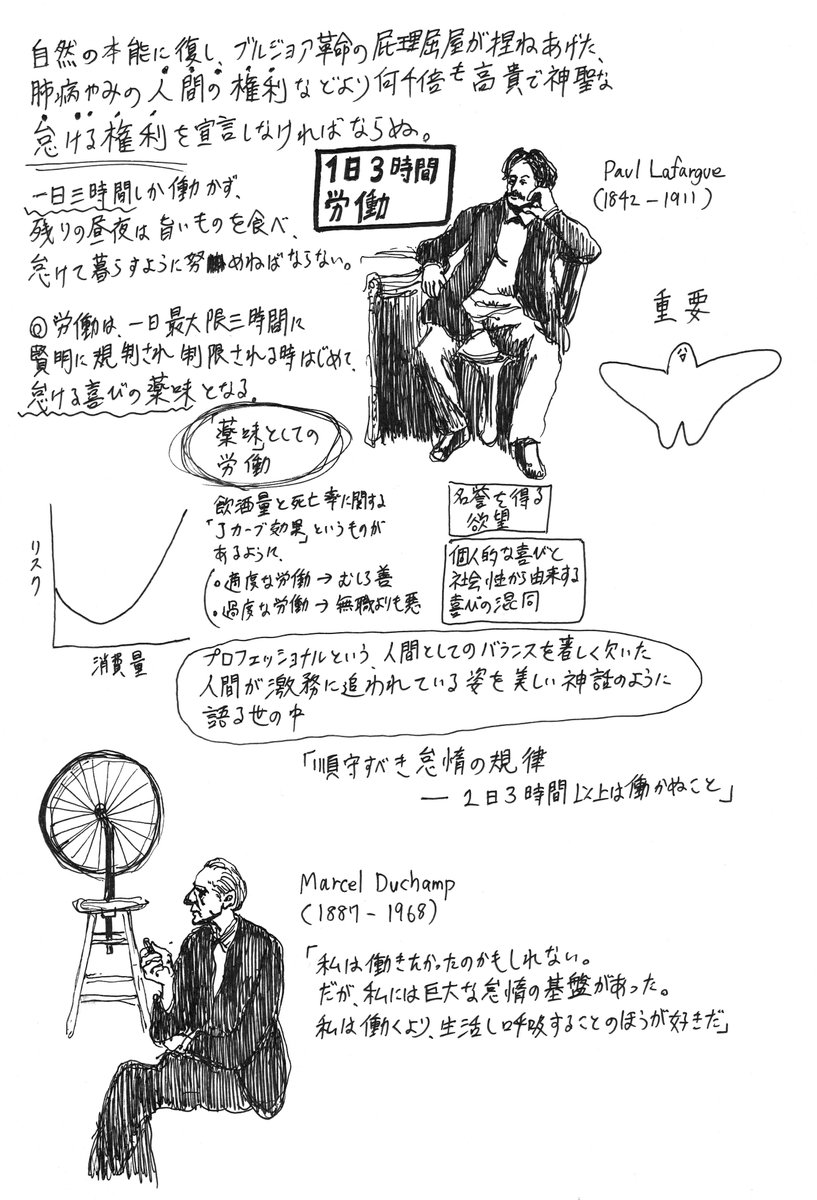 自然の本能に復し、ブルジョア革命の屁理屈屋が捏ねあげた、
肺病やみの人間の権利などより何千倍も高貴で神聖な
怠ける権利を宣言しなければならぬ。
一日三時間しか働かず、
残りの昼夜は旨いものを食べ、
怠けて暮らすように努めねばならない。
1日3時間
労働
Paul Lafargue
(1842-1911)
◎労働は、一日最大限三時間に
賢明に規制され制限される時はじめて、
怠ける喜びの薬味となる。
重要
「薬味」としての
労働
リスク
消費量
飲酒量と死亡率に関する
「Jカーブ効果」というものが
あるように、
・適度な労働→むしろ善
・過度な労働→無職よりも悪
名誉を得る
欲望
個人的な喜びと
社会性から由来する
喜びの混同
プロフェッショナルという、人間としてのバランスを著しく欠いた
人間が激務に追われている姿を美しい神話のように
語る世の中
「順守すべき怠惰の規律
― 1日3時間以上は働かぬこと」
Marcel Duchamp
(1887-1968)
「私は働きたかったのかもしれない。
だが、私には巨大な怠惰の基盤があった。
私は働くより、生活し呼吸することのほうが好きだ」